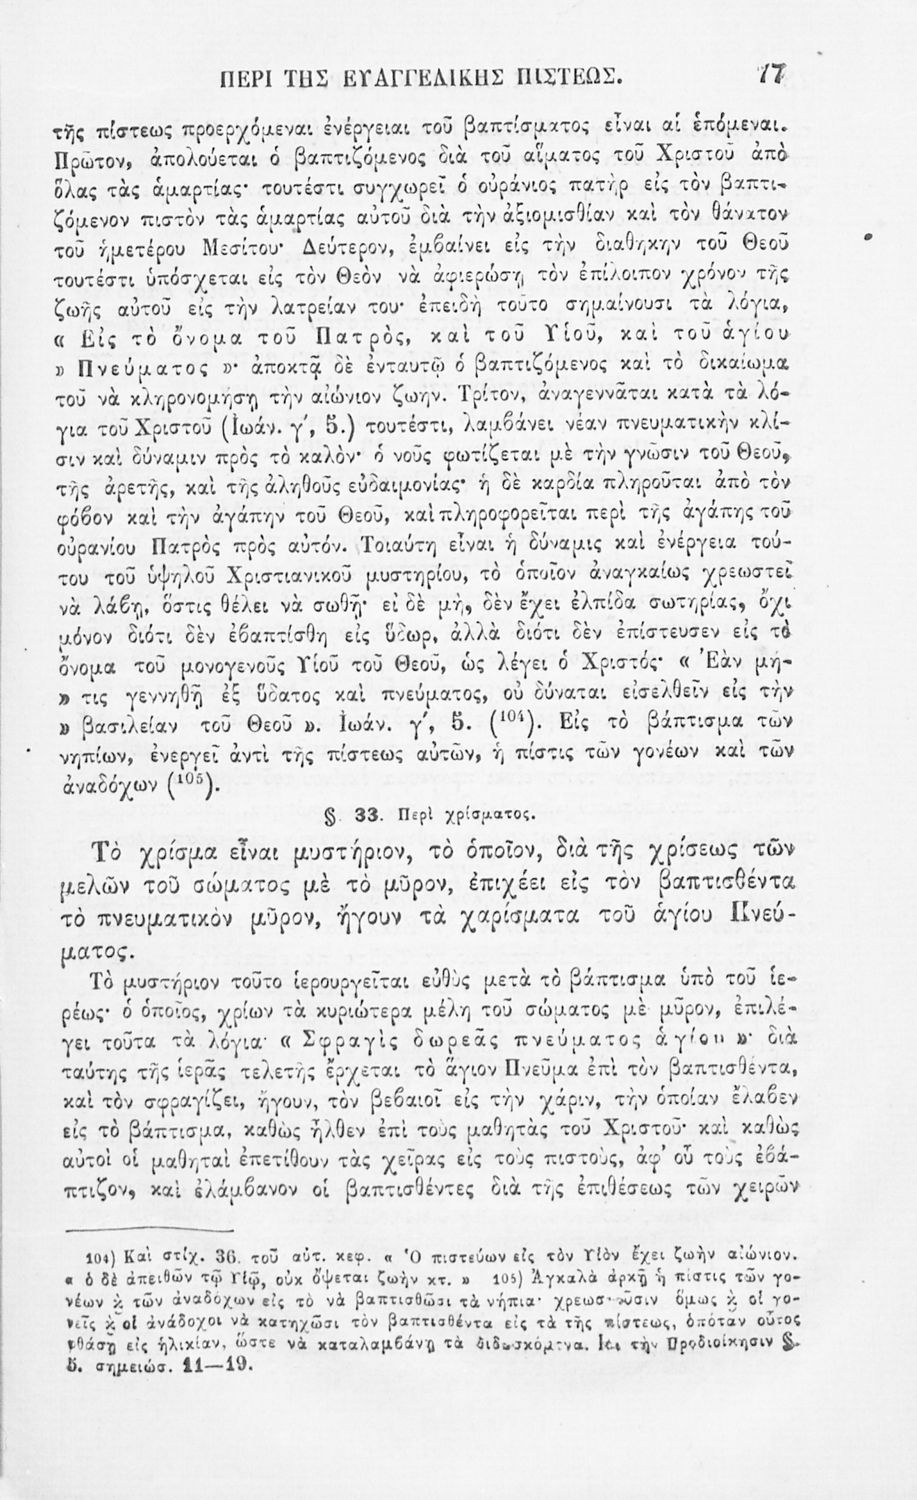 ΠΕΡΙ ΤΗΣ ΕΥΑΓΓΕΛΙΚΗΣ ΠΙΣΤΕΩΣ. 77
τῆς πίστεως προερχόμεναι ἐνέργειαι τοῦ βαπτίσματος εἶναι αἱ ἑπόμεναι.
Πρῶτον, ἀπολούεται ὁ βαπτιζόμενος διὰ τοῦ αἵματος τοῦ Χριστοῦ ἀπὸ
ὅλας τὰς ἁμαρτίας· τουτέστι συγχωρεῖ ὁ οὐράνιος πατὴρ εἰς τὸν βαπτι-
ζόμενον πιστὸν τὰς ἁμαρτίας αὐτοῦ διὰ τὴν ἀξιομισθίαν καὶ τὸν θάνατον
τοῦ ἡμετέρου Μεσίτου· Δεύτερον, ἐμβαίνει εἰς τὴν διαθήκην τοῦ Θεοῦ
τουτέστι ὑπόσχεται εἰς τὸν Θεὸν νὰ ἀφιερώσῃ τὸν ἐπίλοιπον χρόνον τῆς
ζωῆς αὐτοῦ εἰς τὴν λατρείαν του· ἐπειδὴ τοῦτο σημαίνουσι τὰ λόγια,
« Εἰς τὸ ὄνομα τοῦ Πατρὸς, καὶ τοῦ Υἱοῦ, καὶ τοῦ ἁγίου
» Πνεύματος »· ἀποκτᾷ δὲ ἐνταυτῷ ὁ βαπτιζόμενος καὶ τὸ δικαίωμα
τοῦ νὰ κληρονομήσῃ τὴν αἰώνιον ζωην. Τρίτον, ἀναγεννᾶται κατὰ τὰ λό-
για τοῦ Χριστοῦ (Ἰωάν. γ´, 5.) τουτέστι, λαμβάνει νέαν πνευματικὴν κλί-
σιν καὶ δύναμιν πρὸς τὸ καλὸν· ὁ νοῦς φωτίζεται μὲ τὴν γνῶσιν τοῦ Θεοῦ,
τῆς ἀρετῆς, καὶ τῆς ἀληθοῦς εὐδαιμονίας· ἡ δὲ καρδία πληροῦται ἀπὸ τὸν
φόβον καὶ τὴν ἀγάπην τοῦ Θεοῦ, καὶ πληροφορεῖται περὶ τῆς ἀγάπης τοῦ
οὐρανίου Πατρὸς πρὸς αὐτόν. Τοιαύτη εἶναι ἡ δύναμις καὶ ἐνέργεια τού-
του τοῦ ὑψηλοῦ Χριστιανικοῦ μυστηρίου, τὸ ὁποῖον ἀναγκαίως χρεωστεῖ
νὰ λάβῃ, ὅστις θέλει νὰ σωθῇ· εἰ δὲ μὴ, δὲν ἔχει ἐλπίδα σωτηρίας, ὄχι
μόνον διότι δὲν ἐβαπτίσθη εἰς ὕδωρ, ἀλλὰ διότι δὲν ἐπίστευσεν εἰς τὸ
ὄνομα τοῦ μονογενοῦς Υἱοῦ τοῦ Θεοῦ, ὡς λέγει ὁ Χριστός· « Ἐὰν μή-
» τις γεννηθῇ ἐξ ὕδατος καὶ πνεύματος, οὐ δύναται εἰσελθεῖν εἰς τὴν
» βασιλείαν τοῦ Θεοῦ ». Ἰωάν. γ´, 5. (¹⁰⁴). Εἰς τὸ βάπτισμα τῶν
νηπίων, ἐνεργεῖ ἀντὶ τῆς πίστεως αὐτῶν, ἡ πίστις τῶν γονέων καὶ τῶν
ἀναδόχων (¹⁰⁵).
§. 33. Περὶ χρίσματος.
Τὸ χρίσμα εἶναι μυστήριον, τὸ ὁποῖον, διὰ τῆς χρίσεως τῶν
μελῶν τοῦ σώματος μὲ τὸ μῦρον, ἐπιχέει εἰς τὸν βαπτισθέντα
τὸ πνευματικὸν μῦρον, ἤγουν τὰ χαρίσματα τοῦ ἁγίου Πνεύ-
ματος.
Τὸ μυστήριον τοῦτο ἱερουργεῖται εὐθὺς μετὰ τὸ βάπτισμα ὑπὸ τοῦ ἱε-
ρέως· ὁ ὁποῖος, χρίων τὰ κυριώτερα μέλη τοῦ σώματος μὲ μῦρον, ἐπιλέ-
γει τοῦτα τὰ λόγια· « Σφραγὶς δωρεᾶς πνεύματος ἁγίου »· διὰ
ταύτης τῆς ἱερᾶς τελετῆς ἔρχεται τὸ ἅγιον Πνεῦμα ἐπὶ τὸν βαπτισθέντα,
καὶ τὸν σφραγίζει, ἤγουν, τὸν βεβαιοῖ εἰς τὴν χάριν, τὴν ὁποίαν ἔλαβεν
εἰς τὸ βάπτισμα, καθὼς ἦλθεν ἐπὶ τοὺς μαθητὰς τοῦ Χριστοῦ· καὶ καθὼς
αὐτοὶ οἱ μαθηταὶ ἐπετίθουν τὰς χεῖρας εἰς τοὺς πιστοὺς, ἀφ' οὗ τοὺς ἐβά-
πτιζον, καὶ ἐλάμβανον οἱ βαπτισθέντες διὰ τῆς ἐπιθέσεως τῶν χειρῶν
104) Καὶ στίχ. 36. τοῦ αὐτ. κεφ. « Ὁ πιστεύων εἰς τὸν Υἱὸν ἔχει ζωὴν αἰώνιον.
« ὁ δὲ ἀπειθῶν τῷ Υἱῷ, οὐκ ὄψεται ζωὴν κτ. » 105) Ἀγκαλὰ ἀρκῇ ἡ πίστις τῶν γο-
νέων ϗ τῶν ἀναδόχων εἰς τὸ νὰ βαπτισθῶσι τὰ νήπια· χρεωστοῦσιν ὅμως ϗ οἱ γο-
νεῖς ϗ οἱ ἀνάδοχοι νὰ κατηχῶσι τὸν βαπτισθέντα εἰς τὰ τῆς πίστεως, ὁπόταν οὗτος
φθάσῃ εἰς ἡλικίαν, ὥστε νὰ καταλαμβάνῃ τὰ διδασκόμενα. Ἰδὲ τὴν Προδιοίκησιν §.
5. σημειώσ. 11—19.